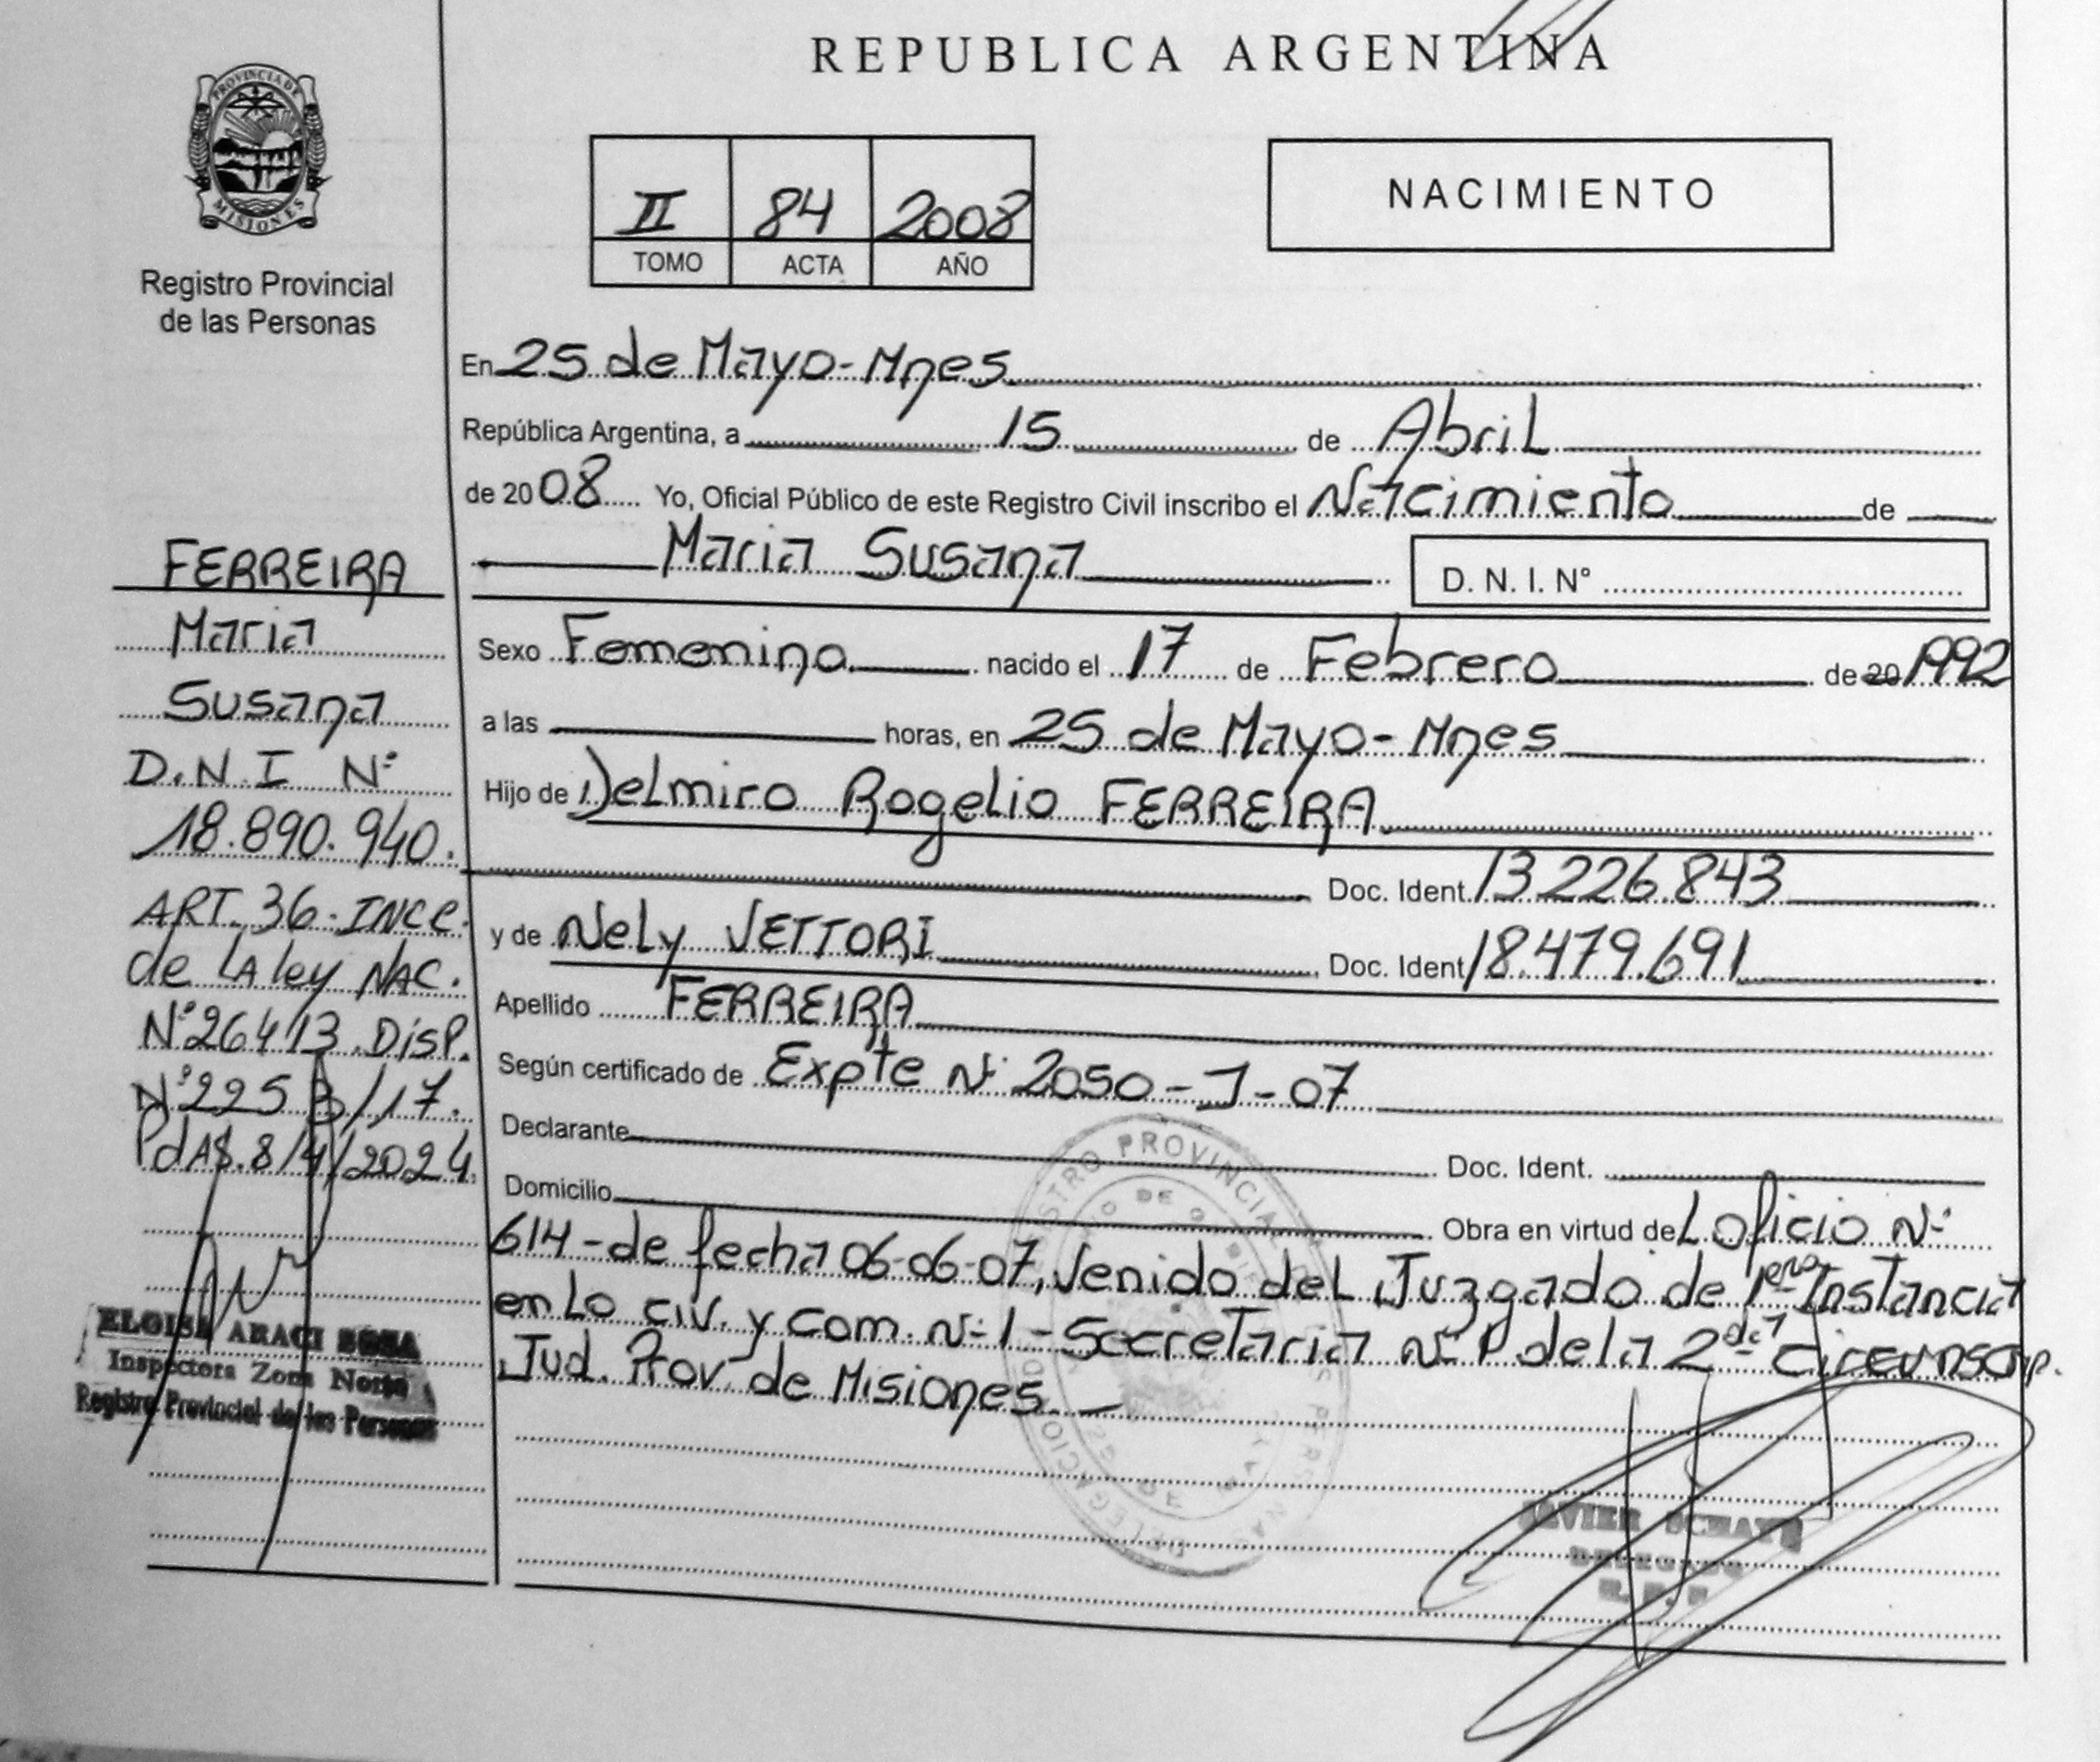 REPUBLICA ARGENTINA
PROVINCIA DE
MISIONES
Registro Provincial
de las Personas
II 84 2008
TOMO ACTA AÑO
NACIMIENTO
En 25 de Mayo-Mnes
República Argentina, a 15 de Abril
de 2008 Yo, Oficial Público de este Registro Civil inscribo el Nacimiento de
Maria Susana D. N. I. N°
Sexo Femenino nacido el 17 de Febrero de 20 1992
a las horas, en 25 de Mayo-Mnes
Hijo de Delmiro Rogelio FERREIRA
Doc. Ident. 13.226.843
y de Nely VETTORI Doc. Ident. 18.479.691
Apellido FERREIRA
Según certificado de Expte N° 2050-J-07
Declarante Doc. Ident.
Domicilio Obra en virtud deL oficio N°
614-de fecha 06-06-07, Venido del Juzgado de 1era Instancia
en Lo civ. y com. N°1-Secretaria N° de la 2da circunscrip.
Jud. Prov. de Misiones.
FERREIRA
Maria
Susana
D.N.I N°
18.890.940.
ART. 36. INC c.
de LA ley NAC.
N°26413. Disp.
N°225 /17.
PdAS. 8/4/2024
ELOISA ARACI SOSA
Inspectora Zona Norte
Registro Provincial de las Personas
REGISTRO PROVINCIAL DE LAS PERSONAS
DELEGACION
25 DE MAYO
JAVIER
DELEGADO
R. P. P.